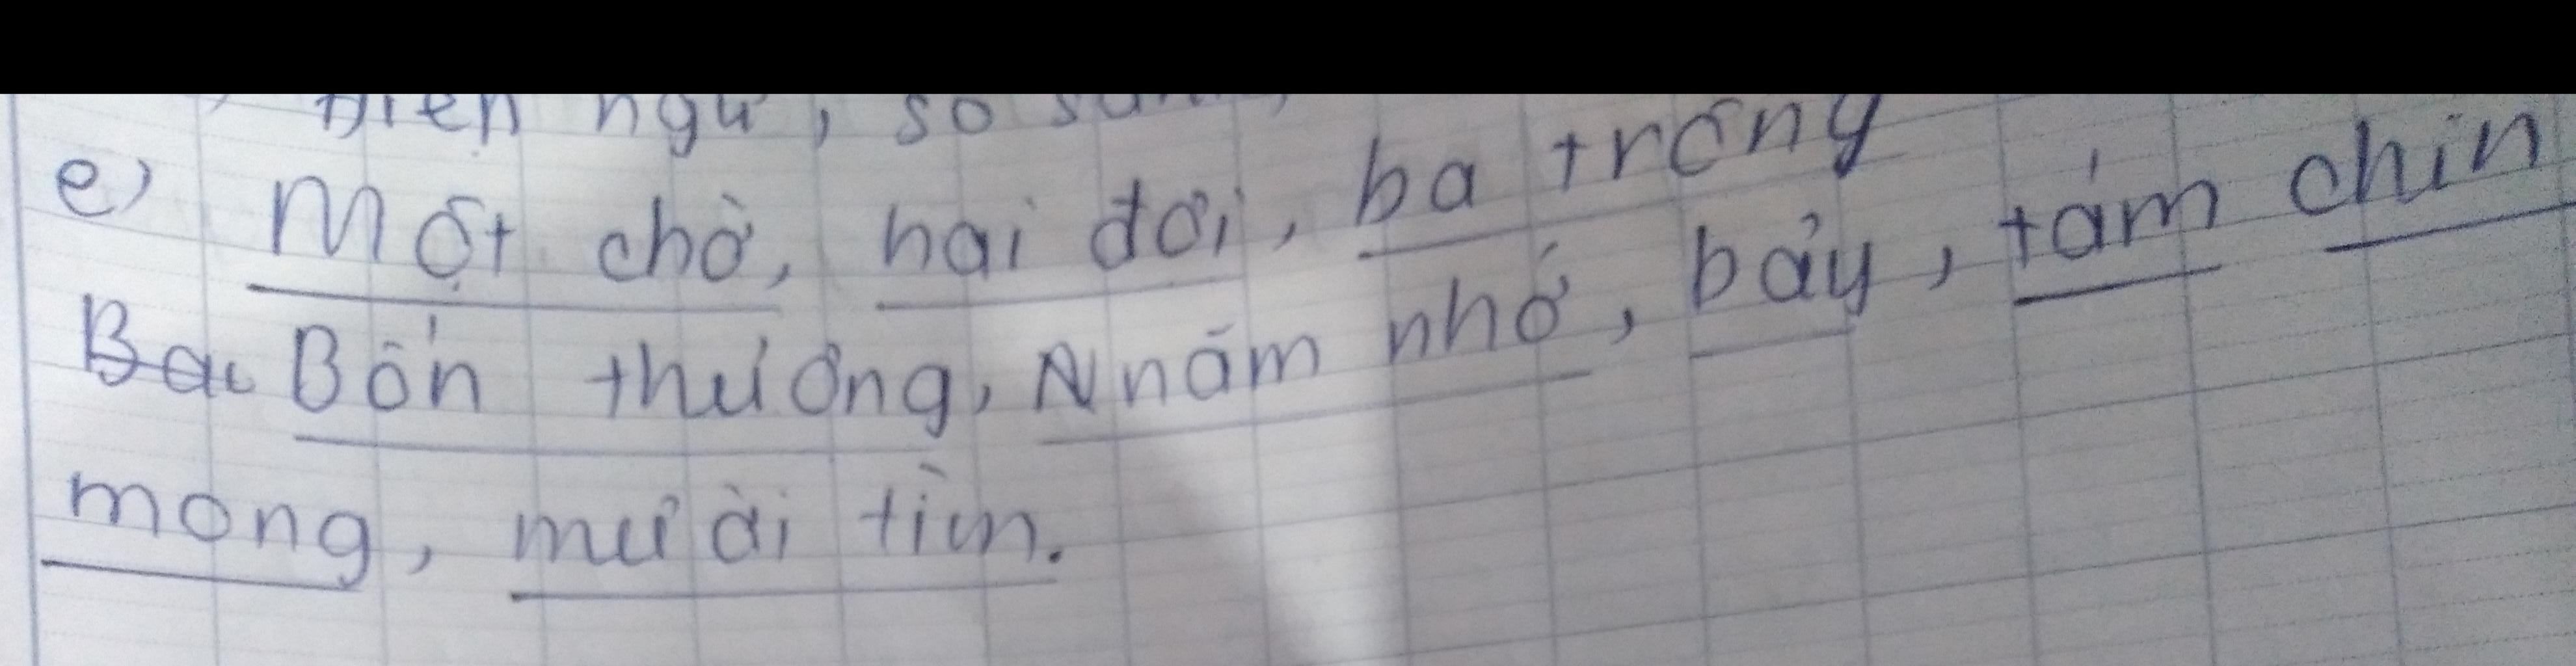 Điện ngữ, so sánh,
e) Một chờ, hai đợi, ba trông
Ba Bốn thương, N năm nhớ, bảy, tám chín
mong, mười tìm.